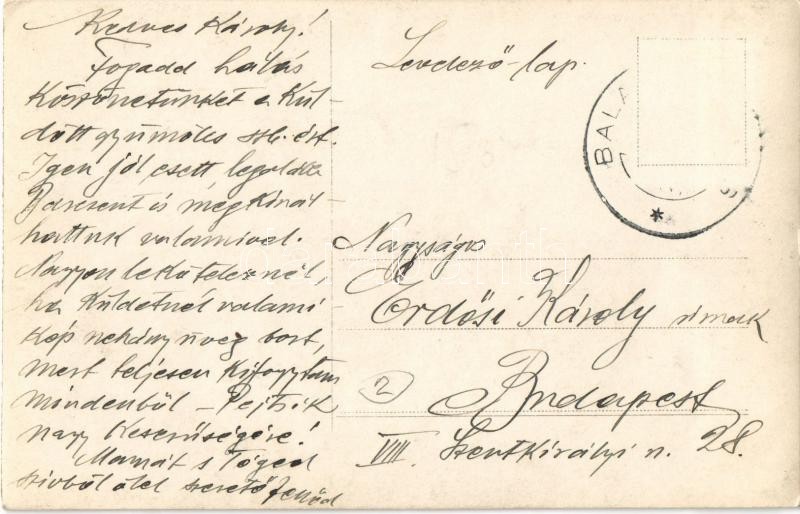 Kedves Károly!
Fogadd hálás
köszönetünket a kül-
dött gyümölcs stb. ért.
Igen jól esett legalább
és még kinál-
hattunk valamivel.
Nagyon leköteleznél,
ha küldetnél valami-
kép nehány üveg bort,
mert teljesen kifogytam
mindenből –
nagy keserűségére!
Mamát s Téged
szivből ölel szerető Jenőd
Levelező-lap.
BALA
Nagyságos
Erdősi Károly úrnak
Budapest
VIII. Szentkirályi u. 28.
2